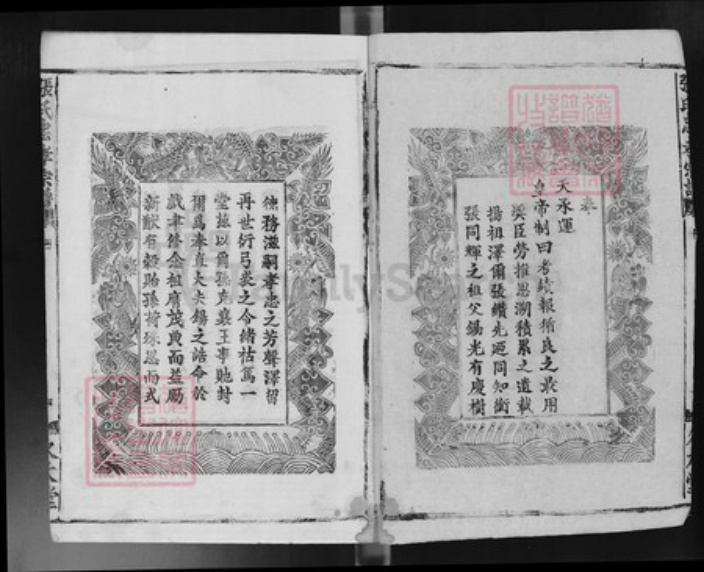 奉
天承運
皇帝制曰考績報循良之最用
奬臣勞推恩溯積累之遺載
揚祖澤爾張纘先廼同知銜
張同輝之祖父錫光有慶樹
德務滋嗣孝忠之芳聲澤留
再世衍弓裘之令緒祜篤一
堂茲以爾孫克襄王事貤封
爾爲奉直大夫錫之誥命於
戲聿修念祖膺茂典而益勵
新猷有穀貽孫荷琛恩而式